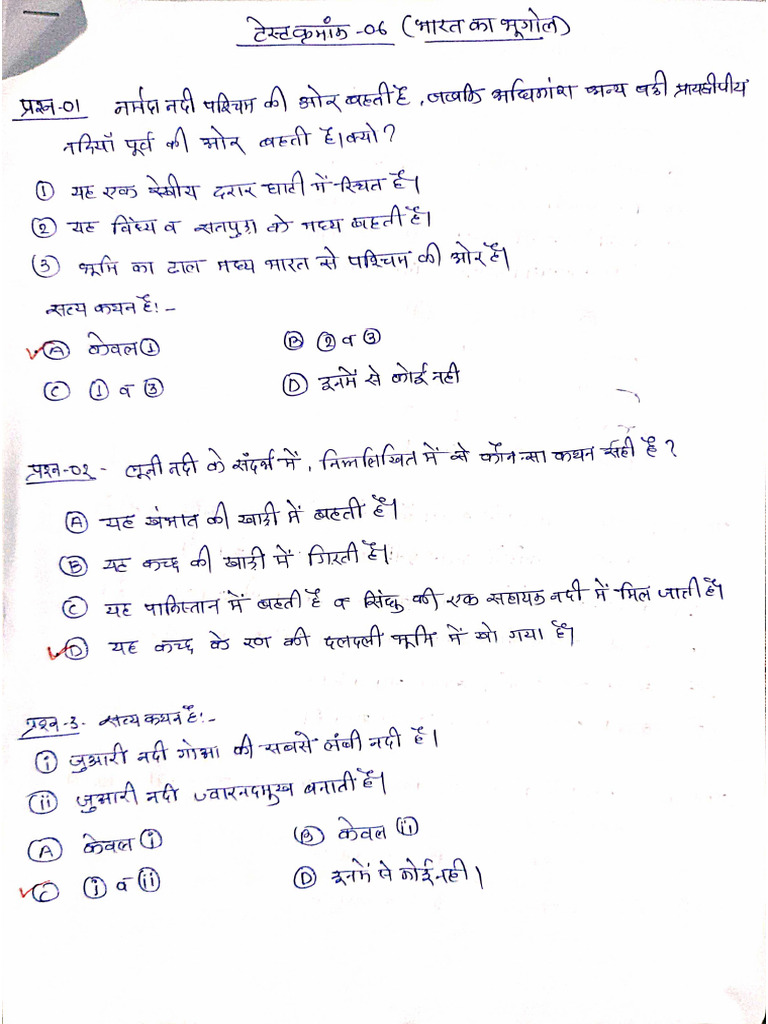 टेस्ट क्रमांक -06 (भारत का भूगोल)
प्रश्न-01 नर्मदा नदी पश्चिम की ओर बहती है, जबकि अधिकांश अन्य बडी प्रायद्वीपीय
नदियाँ पूर्व की ओर बहती है। क्यो?
① यह एक रेखीय दरार घाटी में स्थित है।
② यह विंध्य व सतपुड़ा के मध्य बहती है।
③ भूमि का ढाल मध्य भारत से पश्चिम की ओर है।
सत्य कथन है:-
Ⓐ केवल ①
Ⓑ ② व ③
Ⓒ ① व ③
Ⓓ इनमें से कोई नही
प्रश्न-02 - लूनी नदी के संदर्भ में, निम्नलिखित में से कौन-सा कथन सही है ?
Ⓐ यह खंभात की खाड़ी में बहती है।
Ⓑ यह कच्छ की खाड़ी में गिरती है।
Ⓒ यह पाकिस्तान में बहती है व सिंधु की एक सहायक नदी में मिल जाती है।
Ⓓ यह कच्छ के रण की दलदली भूमि में खो गया है।
प्रश्न-3- सत्य कथन है:-
ⓘ जुआरी नदी गोआ की सबसे लंबी नदी है।
(ii) जुआरी नदी ज्वारनदमुख बनाती है।
Ⓐ केवल ⓘ
Ⓑ केवल (ii)
Ⓒ ⓘ व (ii)
Ⓓ इनमें से कोई नही।